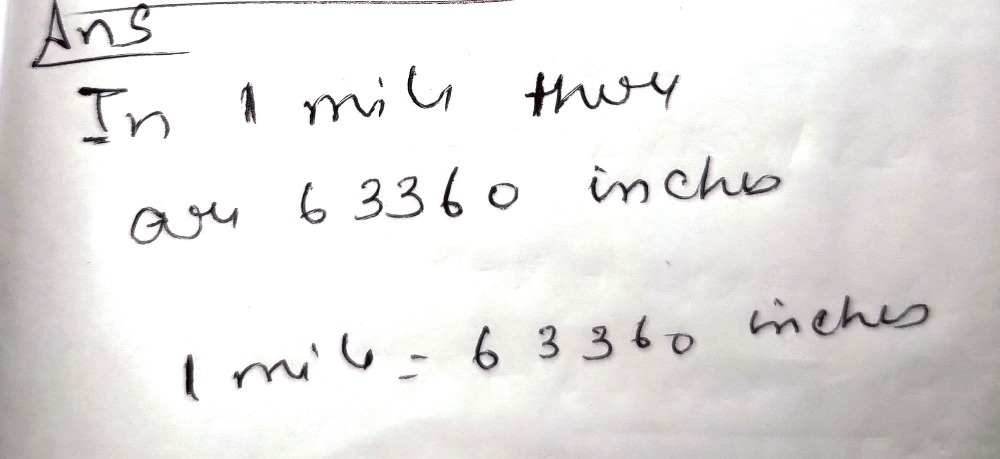 Ans
In 1 mile there
are 63360 inches
1 mile = 63360 inches